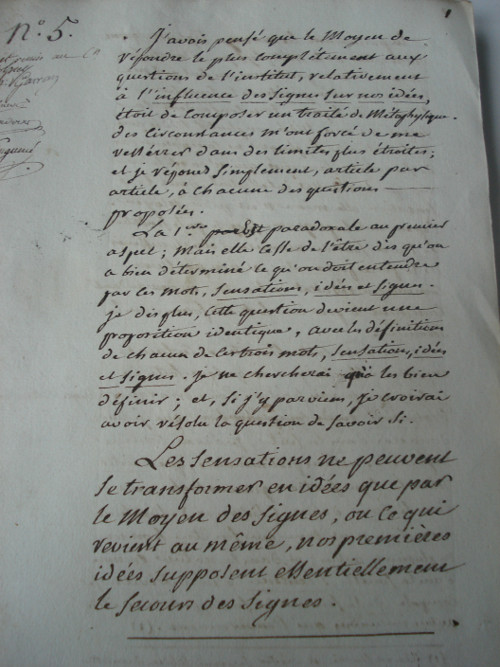 N.° 5.
1
J'avois pensé que le Moyen de
répondre le plus complétement aux
questions de l'institut, relativement
à l'influence des signes sur nos idées,
étoit de Composer un traité de Métaphysique.
des circonstances m'ont forcé de me
resserrer dans des limites plus étroites;
et je réponds simplement, article par
article, à chacune des questions
proposées.
La 1.ere paroit paradoxale au premier
aspect; mais elle cesse de l'être dès qu'on
a bien déterminé ce qu'on doit entendre
par les mots, sensations, idées et signes.
je dis plus, cette question devient une
proposition identique, avec les définitions
de chacun de ces trois mots, sensations, idées
et signes. je ne chercherai qu'à les bien
définir; et, si j'y parviens, je croirai
avoir résolu la question de savoir si.
Les sensations ne peuvent
se transformer en idées que par
le Moyen des signes, ou ce qui
revient au même, nos premières
idées supposent essentiellement
le secours des signes.